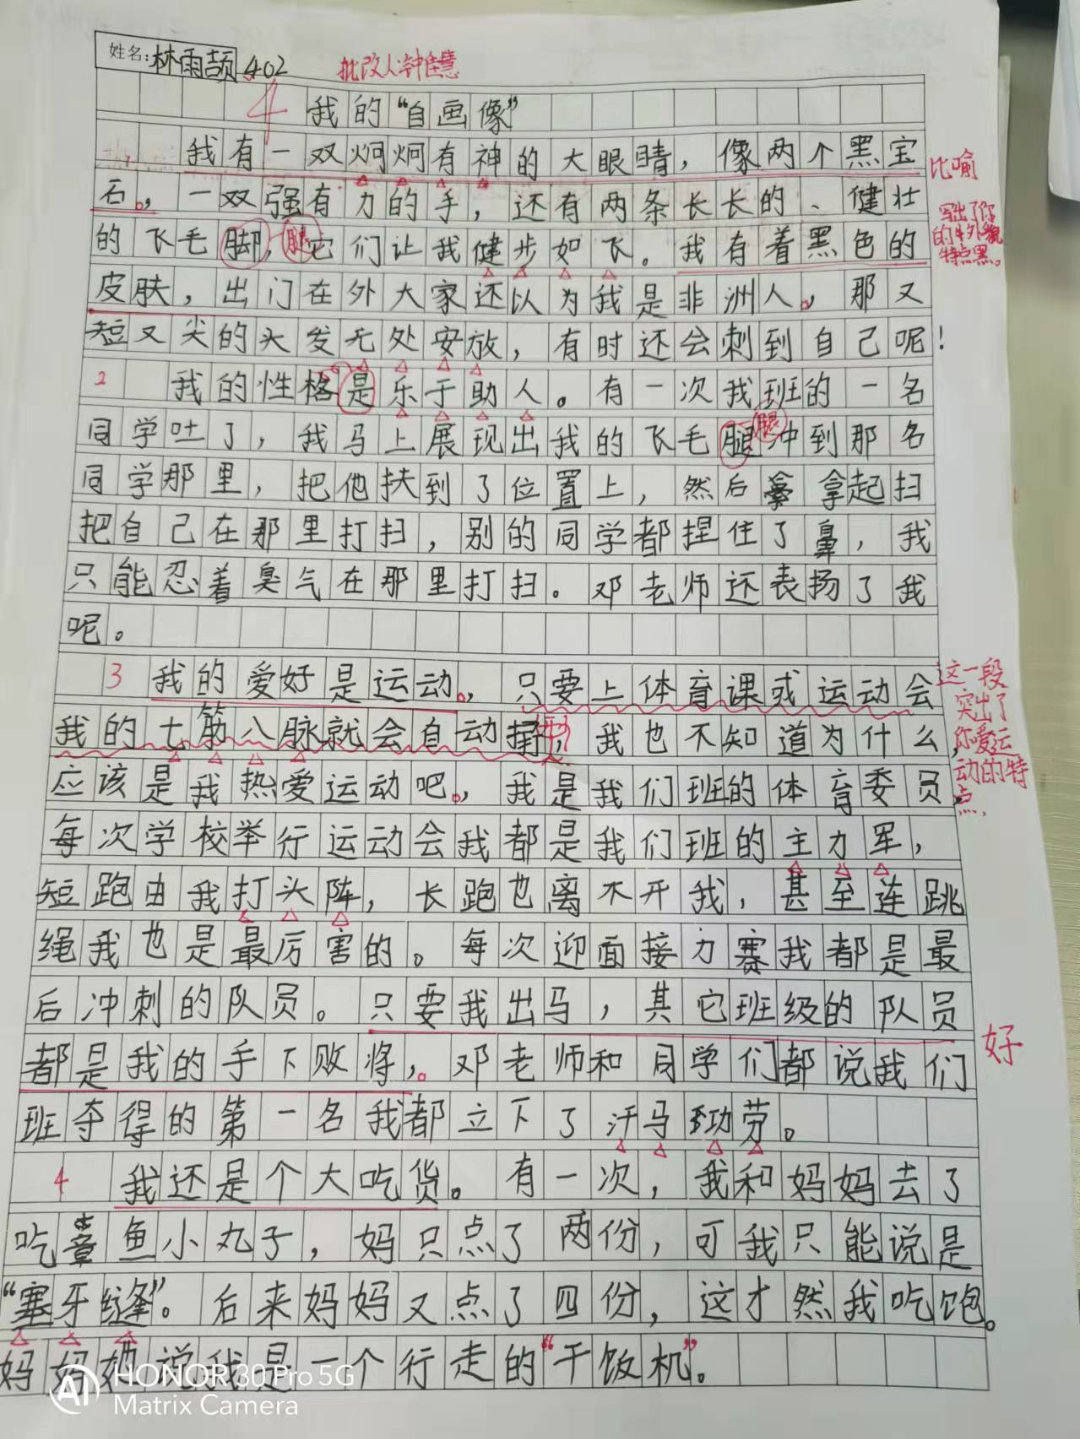 姓名:林雨颉 402
批改人:钟佳慧
4 我的“自画像”
我有一双炯炯有神的大眼睛，像两个黑宝
比喻
石。，一双强有力的手，还有两条长长的、健壮
写出了你的外貌特点黑。
的飞毛脚，腿它们让我健步如飞。我有着黑色的
皮肤，出门在外大家还以为我是非洲人。，那又
短又尖的头发无处安放，有时还会刺到自己呢！
2 我的性格是乐于助人。有一次我班的一名
同学吐了，我马上展现出我的飞毛腿腿冲到那名
同学那里，把他扶到了位置上，然后拿起扫
把自己在那里打扫，别的同学都捏住了鼻，我
只能忍着臭气在那里打扫。邓老师还表扬了我
呢。
3 我的爱好是运动。，只要上体育课或运动会
这一段
突出了
你爱运
动的特
点，
我的七筋八脉就会自动打，我也不知道为什么，
应该是我热爱运动吧。，我是我们班的体育委员，
每次学校举行运动会我都是我们班的主力军，
短跑由我打头阵，长跑也离不开我，甚至连跳
绳我也是最厉害的。每次迎面接力赛我都是最
后冲刺的队员。只要我出马，其它班级的队员
好
都是我的手下败将，。邓老师和同学们都说我们
班夺得的第一名我都立下了汗马功劳。
4 我还是个大吃货。有一次，我和妈妈去了
吃章鱼小丸子，妈只点了两份，可我只能说是
“塞牙缝”。后来妈妈又点了四份，这才然我吃饱。
妈妈她说我是一个行走的“干饭机”。
AI HONOR 30 Pro 5G
Matrix Camera